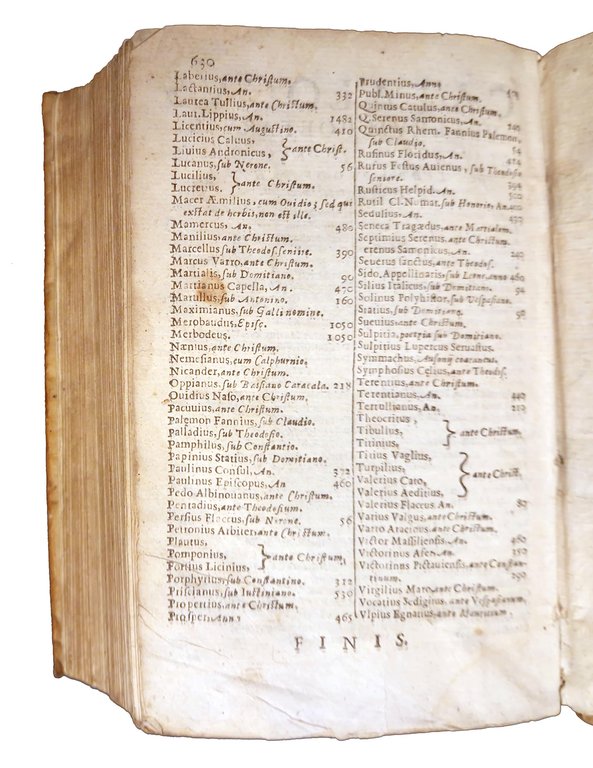 630
Laberius, ante Christum.
Lactantius, An. 332
Laurea Tullius, ante Christum.
Laur. Lippius, An. 1482
Licentius, cum Augustino. 410
Lucicius Caluus,
Liuius Andronicus, } ante Christ.
Lucanus, sub Nerone. 56
Lucilius,
Lucretius. } ante Christum.
Macer Æmilius, cum Ouidio; sed qui
exstat de herbis, non est ille.
Mamercus, An. 480
Manilius, ante Christum.
Marcellus sub Theodos. seniore. 390
Marcus Varro, ante Christum.
Martialis, sub Domitiano. 90
Martianus Capella, An. 470
Marullus, sub Antonino. 160
Maximianus, sub Galli nomine.
Merobaudus, Episc. 1050
Merbodeus. 1050
Nænius, ante Christum.
Nemesianus, cum Calphurnio.
Nicander, ante Christum.
Oppianus, sub Bassiano Caracala. 218
Ouidius Naso, ante Christum.
Pacuuius, ante Christum.
Palemon Fannius, sub Claudio.
palladius, sub Theodosio.
Pamphilus, sub Constantio.
Papinius Statius, sub Domitiano.
Paulinus Consul, An. 372
Paulinus Episcopus, An 460
Pedo Albinouanus, ante Christum.
Pentadius, ante Theodosium.
Persius Flaccus, sub Nerone. 56
Petronius Arbiter, ante Christum.
Plautus,
Pomponius, } ante Christum,
Portius Licinius,
Porphyrius, sub Constantino. 312
Priscianus, sub Iustiniano. 530
Propertius, ante Christum.
Prosper, Anno 465
Prudentius, Anno
Publ. Minus, ante Christum.
Quintus Catulus, ante Christum.
Q. Serenus Samonicus, An. 240
Quinctus Rhem. Fannius Palemon,
sub Claudio. 54
Rufinus Floridus, An. 414
Rufus Festus Auienus, sub Theodosio
seniore. 394
Rusticus Helpid. An. 500
Rutil Cl. Numat. sub Honorio, An. 400
Sedulius, An. 430
Seneca Tragœdus, ante Martialem.
Septimius Serenus, ante Christum.
erenus Samonicus, An. 240
Seuerus sanctus, ante Theodos.
Sido. Appellinaris, sub Leone, Anno 460
Silius Italicus, sub Domitiano. 94
Solinus Polyhistor, sub Vespasiano.
Statius, sub Domitiano. 90
Sueuius, ante Christum.
Sulpitia, poetria sub Domitiano.
Sulpitius Lupercus Seruastus.
Symmachus, Ausonij coætaneus.
Symphosius Cęlius, ante Theodos.
Terentius, ante Christum.
Terentianus, An. 440
Tertullianus, An. 210
Theocritus,
Tibullus, } ante Christum,
Titinius,
Titius Vaglius,
Turpilius, } ante Christ.
Valerius Cato,
Valerius Aedituus,
Valerius Flaccus An. 80
Varius Valgus, ante Christum.
Varro Atacinus, ante Christum.
Victor Massiliensis, An. 460
Victorinus Afer, An. 350
Victorinus Pictauiensis, ante Constantinum. 290
Virgilius Maro, ante Christum.
Vocatius Sedigitus, ante Vespasianum.
Vlpius Egnatius, ante
FINIS.